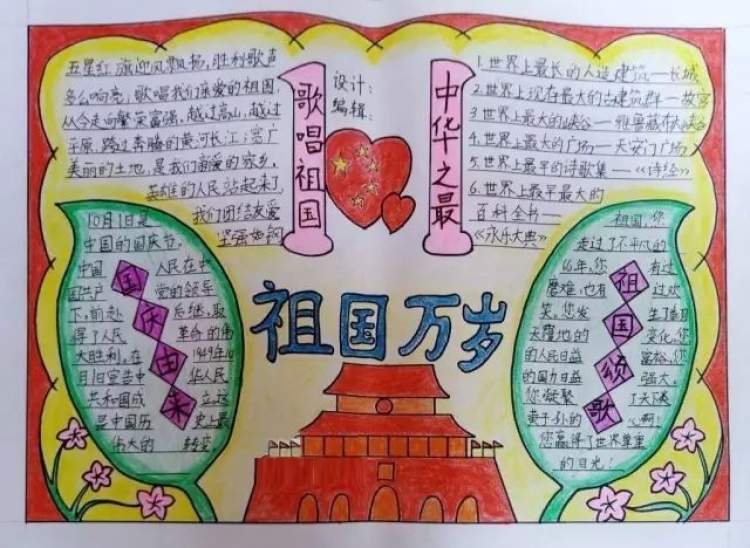 五星红旗迎风飘扬，胜利歌声
多么响亮，歌唱我们亲爱的祖国，
从今走向繁荣富强，越过高山，越过
平原，跨过奔腾的黄河长江；宽广
美丽的土地，是我们亲爱的家乡，
英雄的人民站起来了
我们团结友爱
坚强如钢
歌唱祖国
设计：
编辑：
中华之最
1.世界上最长的人造建筑——长城
2.世界上现存最大的古建筑群——故宫
3.世界上最大的峡谷——雅鲁藏布大峡谷
4.世界上最大的广场——天安门广场
5.世界上最早的诗歌集——《诗经》
6.世界上最早最大的
百科全书——
《永乐大典》
10月1日是
中国的国庆节，
中国 人民在中
国共产 党的领导
下，前赴 后继，取
得了人民 革命的伟
大胜利，在 1949年10
月1日宣告中 华人民
共和国成 立，这
是中国历 史上最
伟大的 转变。
国庆由来
祖国万岁
祖国，您
走过了不平凡的
66年，您 有过
磨难，也有 过欢
笑，您发 生了翻日
天覆地的 变化，您
的人民日益 富裕，您
的国力日益 强大，
您凝聚 了天下炎
黄子孙的 心啊！
您赢得了世界尊重
的目光！
祖国颂歌